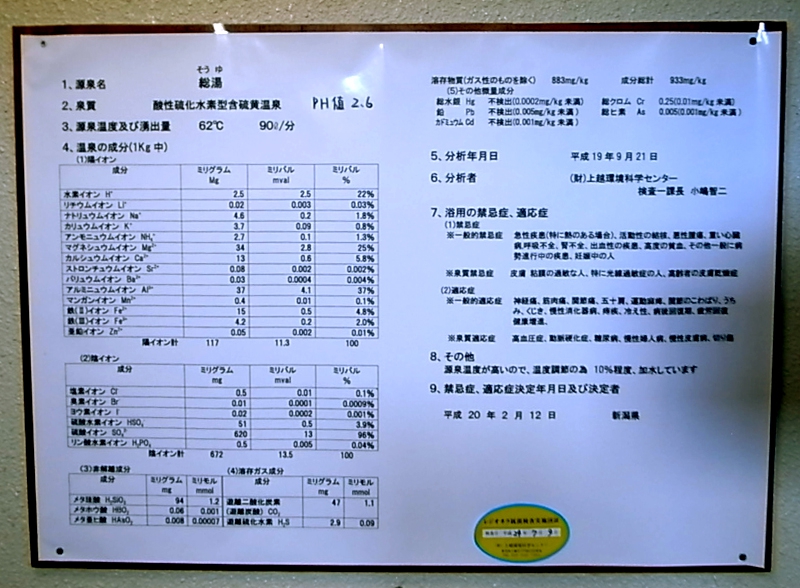 そうゆ
1、源泉名　総湯
2、泉質　酸性硫化水素型含硫黄温泉　PH値 2.6
3、源泉温度及び湧出量　62℃　90ℓ/分
4、温泉の成分(1Kg 中)
(1)陽イオン
成分　ミリグラム Mg　ミリバル mval　ミリバル %
水素イオン H⁺　2.5　2.5　22%
リチウムイオン Li⁺　0.02　0.003　0.03%
ナトリュウムイオン Na⁺　4.6　0.2　1.8%
カリュウムイオン K⁺　3.7　0.09　0.8%
アンモニュウムイオン NH₄⁺　2.7　0.1　1.3%
マグネシュウムイオン Mg²⁺　34　2.8　25%
カルシュウムイオン Ca²⁺　13　0.6　5.8%
ストロンチュウムイオン Sr²⁺　0.08　0.002　0.002%
バリュウムイオン Ba²⁺　0.03　0.0004　0.004%
アルミニュウムイオン Al³⁺　37　4.1　37%
マンガンイオン Mn²⁺　0.4　0.01　0.1%
鉄(Ⅱ)イオン Fe²⁺　15　0.5　4.8%
鉄(Ⅲ)イオン Fe³⁺　4.2　0.2　2.0%
亜鉛イオン Zn²⁺　0.05　0.002　0.01%
陽イオン計　117　11.3　100
(2)陰イオン
成分　ミリグラム mg　ミリバル mval　ミリバル %
塩素イオン Cl⁻　0.5　0.01　0.1%
臭素イオン Br⁻　0.01　0.0001　0.0009%
ヨウ素イオン I⁻　0.02　0.0002　0.001%
硫酸水素イオン HSO₄⁻　51　0.5　3.9%
硫酸イオン SO₄²⁻　620　13　96%
リン酸水素イオン H₂PO₄⁻　0.5　0.005　0.04%
陰イオン計　672　13.5　100
(3)非解離成分
成分　ミリグラム mg　ミリモル mmol
メタ珪酸 H₂SiO₃　94　1.2
メタホウ酸 HBO₂　0.06　0.001
メタ亜ヒ酸 HAsO₂　0.008　0.00007
(4)溶存ガス成分
成分　ミリグラム mg　ミリモル mmol
遊離二酸化炭素　47　1.1
(遊離炭酸) CO₂
遊離硫化水素 H₂S　2.9　0.09
溶存物質(ガス性のものを除く)　883mg/kg　成分総計　933mg/kg
(5)その他微量成分
総水銀 Hg　不検出(0.0002mg/kg 未満)　総クロム Cr　0.25(0.01mg/kg 未満)
鉛 Pb　不検出(0.005mg/kg 未満)　総ヒ素 As　0.005(0.001mg/kg 未満)
カドミュウム Cd　不検出(0.001mg/kg 未満)
5、分析年月日　平成 19 年 9 月 21 日
6、分析者　(財)上越環境科学センター
検査一課長　小嶋智二
7、浴用の禁忌症、適応症
(1)禁忌症
※一般的禁忌症　急性疾患(特に熱のある場合)、活動性の結核、悪性腫瘍、重い心臓
病、呼吸不全、腎不全、出血性の疾患、高度の貧血、その他一般に病
勢進行中の疾患、妊娠中の人
※泉質禁忌症　皮膚 粘膜の過敏な人、特に光線過敏症の人、高齢者の皮膚乾燥症
(2)適応症
※一般的適応症　神経痛、筋肉痛、関節痛、五十肩、運動麻痺、関節のこわばり、うち
み、くじき、慢性消化器病、痔疾、冷え性、病後回復期、疲労回復
健康増進、
※泉質適応症　高血圧症、動脈硬化症、糖尿病、慢性婦人病、慢性皮膚病、切り傷
8、その他
源泉温度が高いので、温度調節の為　10%程度、加水しています
9、禁忌症、適応症決定年月日及び決定者
平成 20 年 2 月 12 日　新潟県